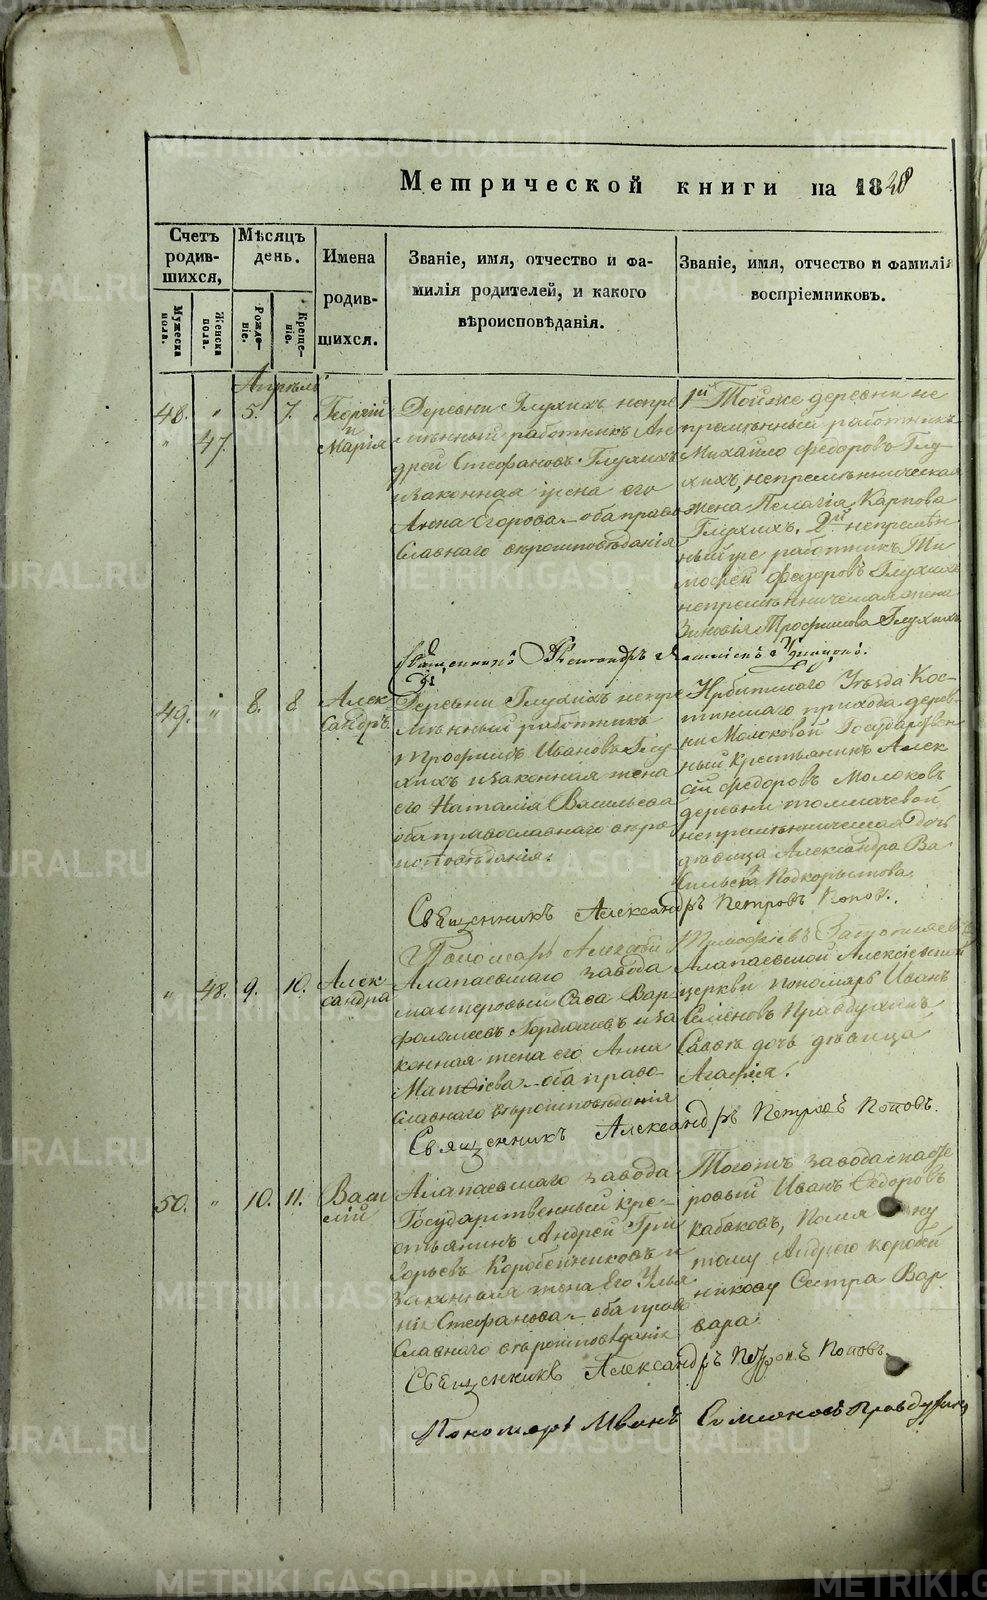 Метрической книги на 1848
Счетъ родив-шихся,
Мужеска пола.
Женска пола.
Мѣсяцъ день.
Рожде-ніе.
Креще-ніе.
Имена родив-шихся.
Званіе, имя, отчество и фа-
милія родителей, и какого
вѣроисповѣданія.
Званіе, имя, отчество и фамилія
воспріемниковъ.
Апрѣль
48. " 5. 7.
" 47.
Георгій
и
Марія
Деревни Глухихъ непре
мѣнный работникъ Ан
дрей Стефановъ Глухихъ
и законная жена его
Анна Егорова – оба право
славнаго вѣроисповѣданія
1й Тойже деревни не
премѣнный работникъ
Михайло Федоровъ Глу
хихъ, непремѣнническая
жена Пелагія Карпова
Глухихъ. 2й непремѣн
ный же работникъ Ти
мофей Федоровъ Глухихъ
непремѣнническая жена
Зиновья Трофимова Глухихъ
49. " 8. 8
Алек
сандръ.
Деревни Глухихъ непре
мѣнный работникъ
Трофимъ Ивановъ Глу
хихъ и законная жена
его Наталія Васильева
оба православнаго вѣро
исповѣданія.
Ирбитскаго Уѣзда Кос
тинскаго прихода дерев
ни Молоковой Государствен
ный крестьянинъ Алек
сій Федоровъ Молоковъ
деревни толмачевой
непремѣнническая дочь
дѣвица Александра Ва
сильева Подкорытова.
Священникъ Александръ Петровъ Поповъ.
Пономарь Алексѣй Тимофѣевъ
" 48. 9. 10.
Алек-
сандра
Алапаевскаго завода
мастеровый Сава Вар
фоломеевъ Гордюшевъ и за
конная жена его Анна
Матѳіева – оба право-
славнаго вѣроисповѣданія
Алапаевской Алексіевской
церкви пономарь Иванъ
Семіоновъ Правдухинъ
Саввы дочь дѣвица
Агафія.
Священникъ Александръ Петровъ Поповъ.
50. " 10. 11.
Васи
лій
Алапаевскаго завода
Государственный кре-
стьянинъ Андрей Гри
горьевъ Коробейниковъ и
законная жена его Улья
нія Стефанова – оба право
славнаго вѣроисповѣданія
Тогожъ завода
ровый Иванъ Ѳедоровъ
Кабаковъ,
тому Андрею коробей
никову Сестра Вар
вара.
Священникъ Александръ Петровъ Поповъ.
Пономарь Иванъ Симіоновъ Правдухинъ
METRIKI.GASO-URAL.RU